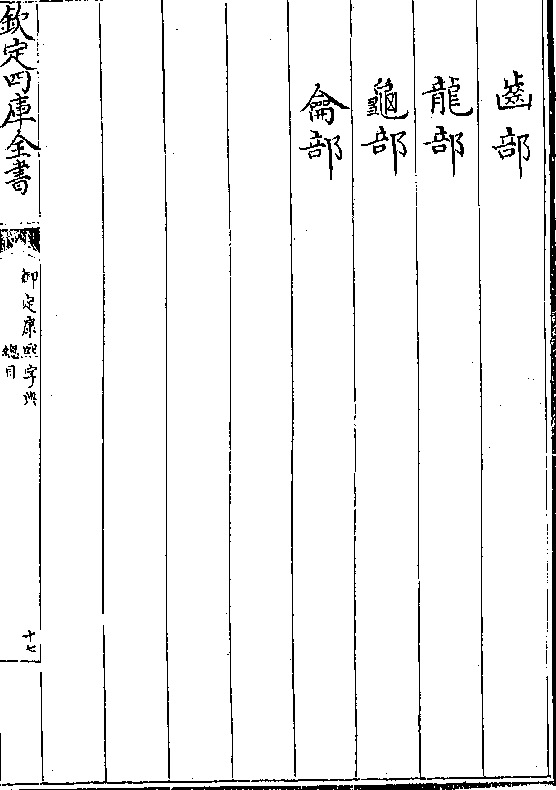 齒部
龍部
龜部
龠部
欽定四庫全書
御定康熙字典
總目
十七